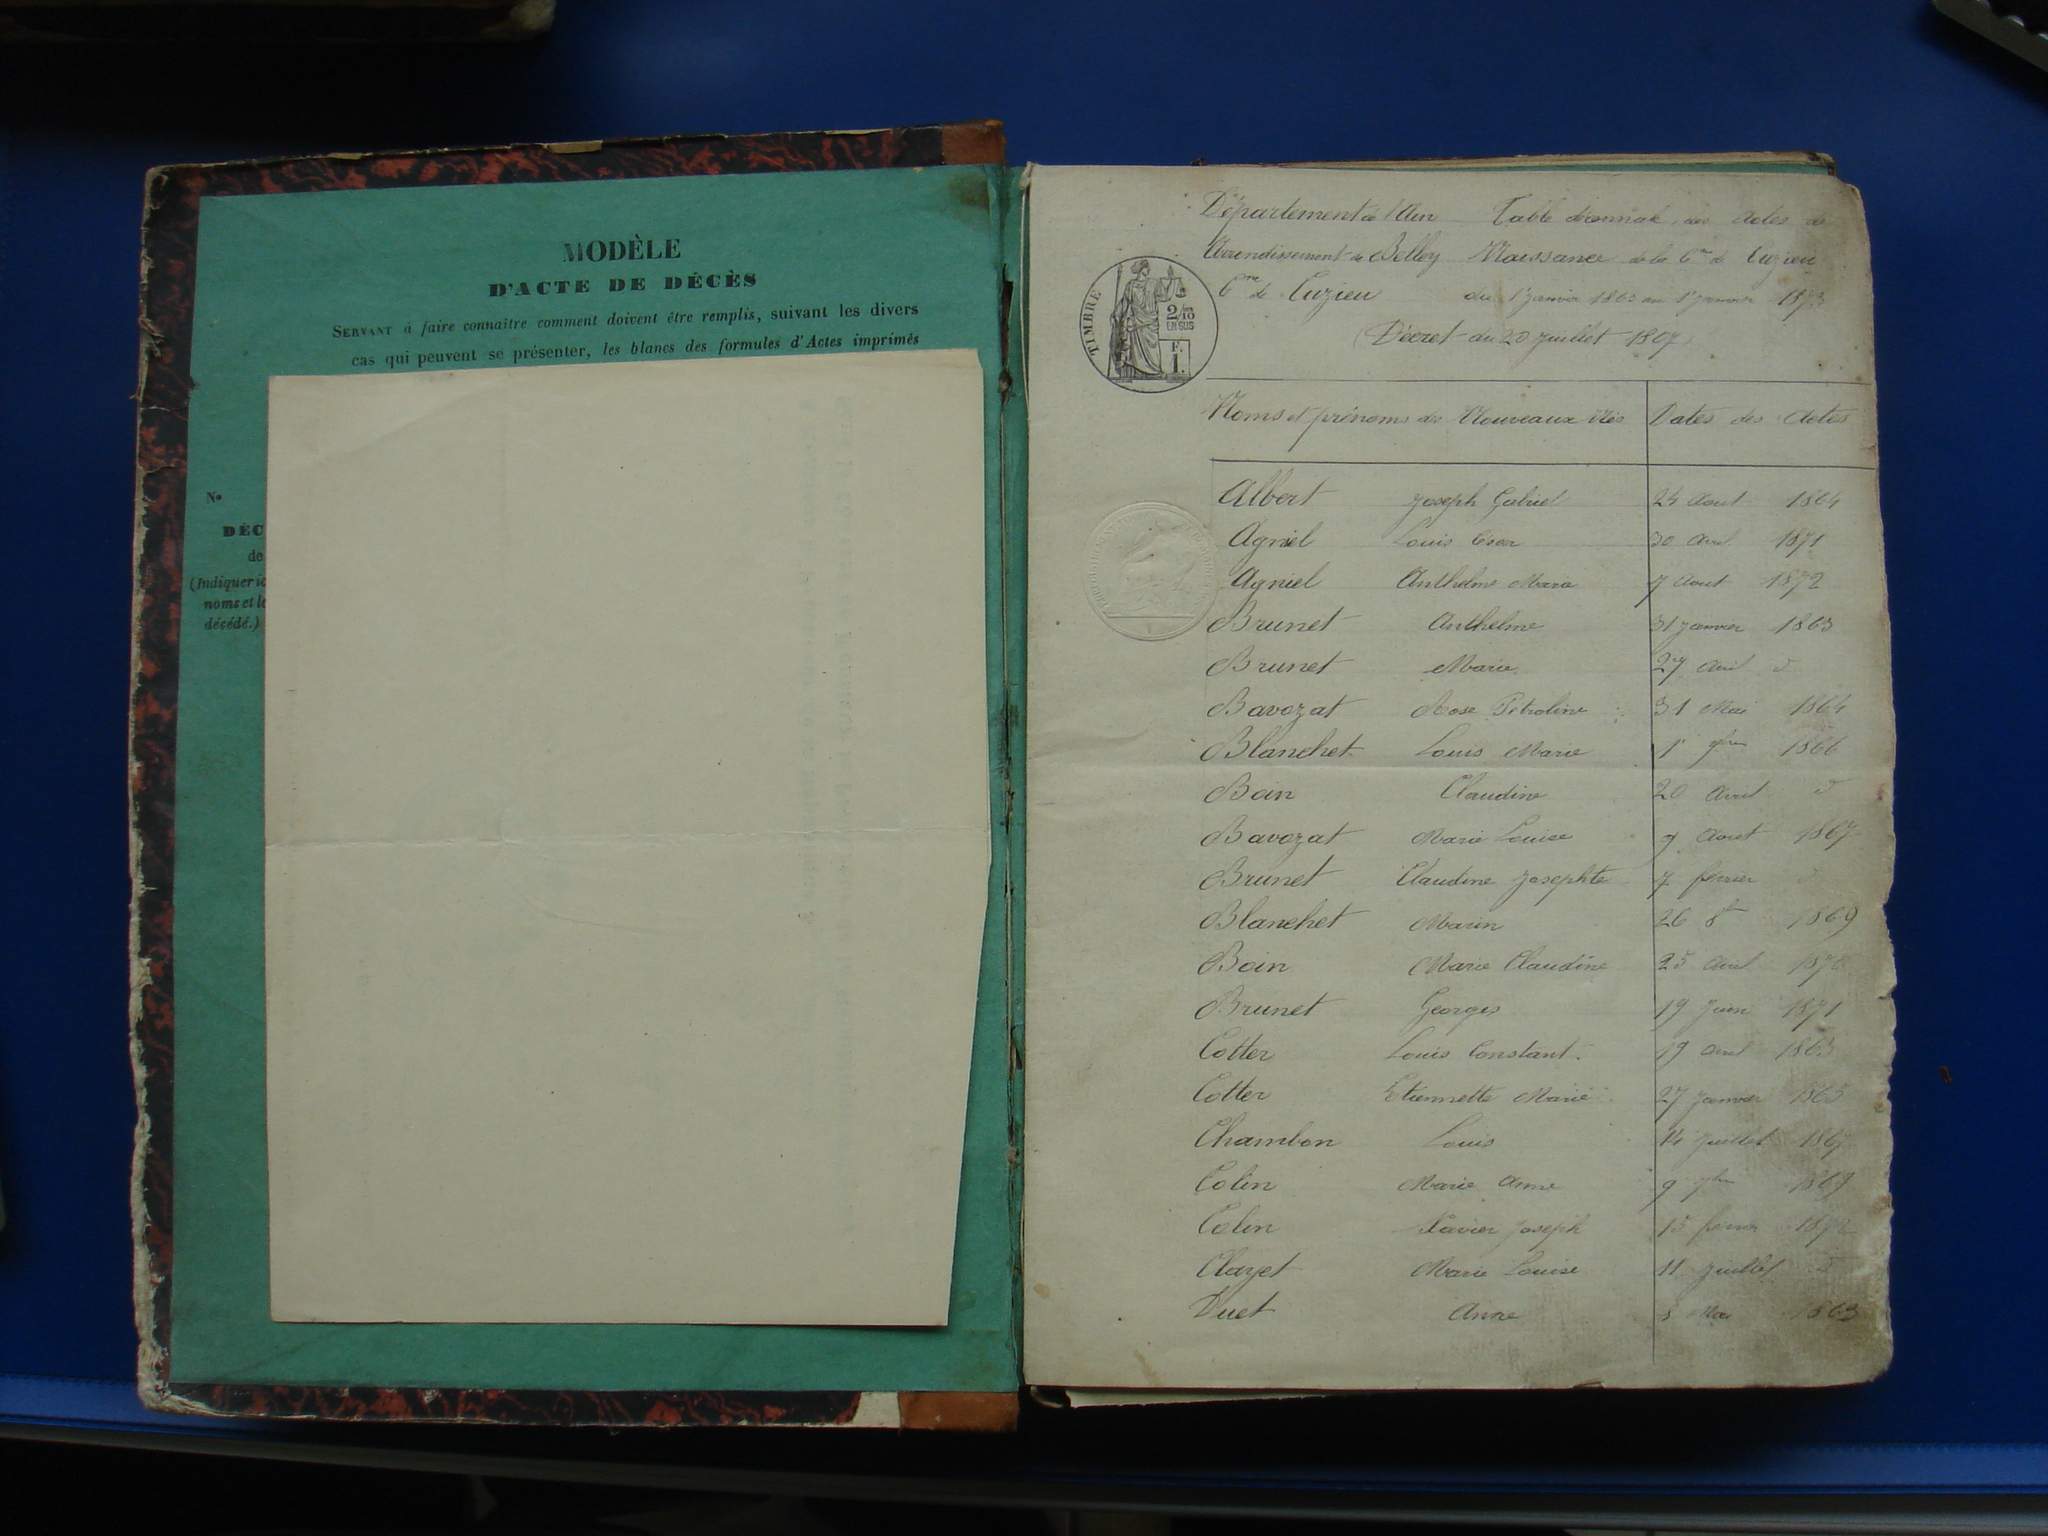 MODÈLE
D'ACTE DE DÉCÈS
SERVANT à faire connaître comment doivent être remplis, suivant les divers
cas qui peuvent se présenter, les blancs des formules d'Actes imprimés
No
DÉC
de
(Indiquer ic
noms et le
décédé.)
TIMBRE
2/10
EN SUS
F.
1.
Département de l'Ain Table décennale des Actes de
Arrondissement de Belley Naissance de la Cne de Cuzieu
Cne de Cuzieu du 1er janvier 1863 au 1er janvier 1873
(Décret du 20 juillet 1807)
Noms et prénoms des Nouveaux Nés Dates des Actes
Albert Joseph Gabriel 24 Aout 1864
Agniel Louis 30 Avril 1871
Agniel Anthelme Marie 7 Aout 1872
Brunet Anthelme 31 janvier 1863
Brunet Marie 27 Avril d
Bavozat Rose Pétroline 31 Mai 1864
Blanchet Louis Marie 1er 1866
Boin Claudine 20 Avril d
Bavozat Marie Louise 9 Aout 1867
Brunet Claudine Josephte 7 février d
Blanchet Marin 26 1869
Boin Marie Claudine 25 Avril 1870
Brunet Georges 19 Juin 1871
Cotter Louis Constant 19 Avril 1863
Cotter Etiennette Marie 27 Janvier 1865
Chambon Louis 14 Juillet 1867
Colin Marie Anne 9 1869
Colin Xavier Joseph 15 février 1872
Clayet Marie Louise 11 Juillet d
Duet Anne 8 Mai 1863